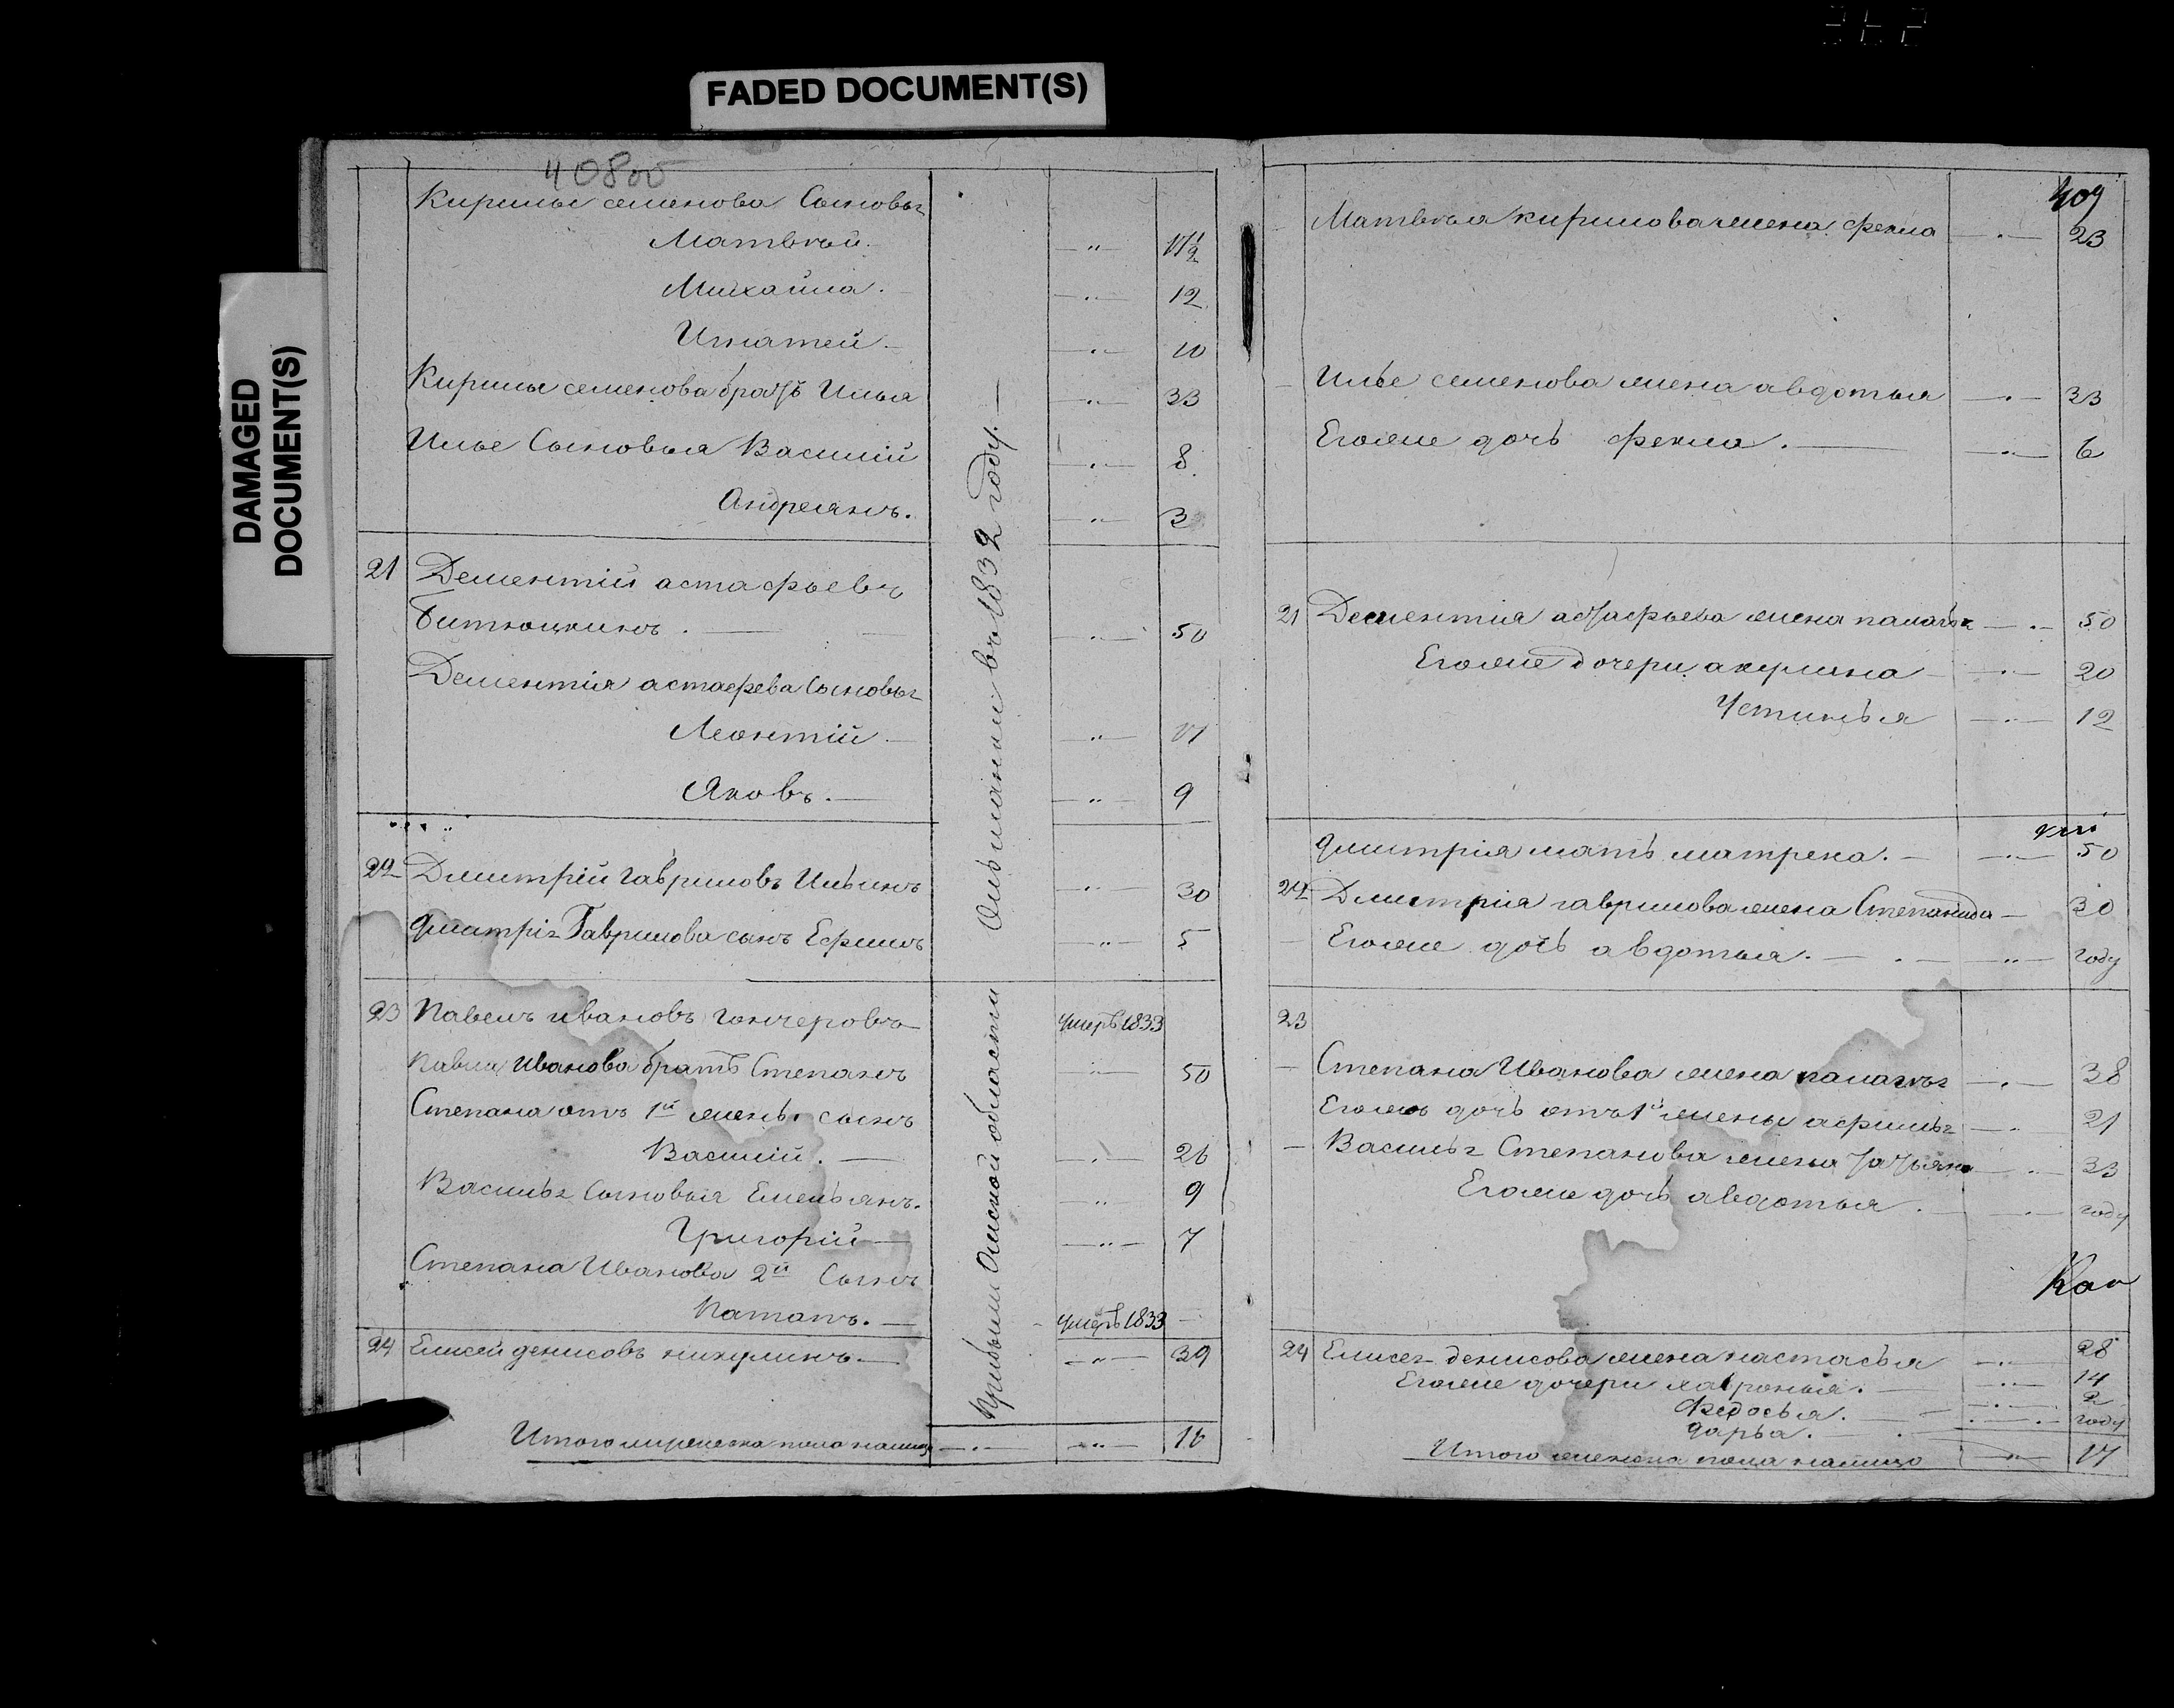 FADED DOCUMENT(S)
DAMAGED
DOCUMENT(S)
408об
Кирилы семенова Сыновья
Матвѣй.
12
Михайла.
10
Игнатей
Кирилы семенова братъ Илья 33
Илье Сыновья Василій 8
Андреянъ. 3
21 Дементій астафьевъ
Битюцкихъ. 50
Дементія астафева Сыновья
Леонтій
Яковъ. 9
22 Дмитрій Гавриловъ Ильинъ 30
Дмитрія Гаврилова сынъ Ефимъ 5
23 Павелъ ивановъ гончеровъ умеръ 1833
Павла Иванова братъ Степанъ 50
Степана отъ 1й жены сынъ
Василій. 26
Василья Сыновья Емельянъ. 9
Григорій 7
Степана Иванова 2й Сынъ
Патапъ. умеръ 1833
24 Елисей денисовъ никулинъ 39
Итого мужеска пола налицо 16
въ 1832 году.
Омской области
409
Матвѣя кирилова жена фекла 23
Илье семенова жена авдотья 33
Егоже дочь фекла. 6
21 Дементія астафьева жена палагѣя 50
Егоже дочери акулина 20
Устинья 12
дмитрія мать матрена. 50
22 Дмитрія гаврилова жена Степанида 30
Егоже дочь авдотья. году
23
Степана Иванова жена палагѣя 38
Егоже дочь отъ 1й жены афимья 21
Василья Степанова жена татьяна 33
Егоже дочь авдотья. году
24 Елисея денисова жена настасья 28
Егоже дочери хавронья. 14
Федосья. 2
дарья. году
Итого женска пола налицо 17